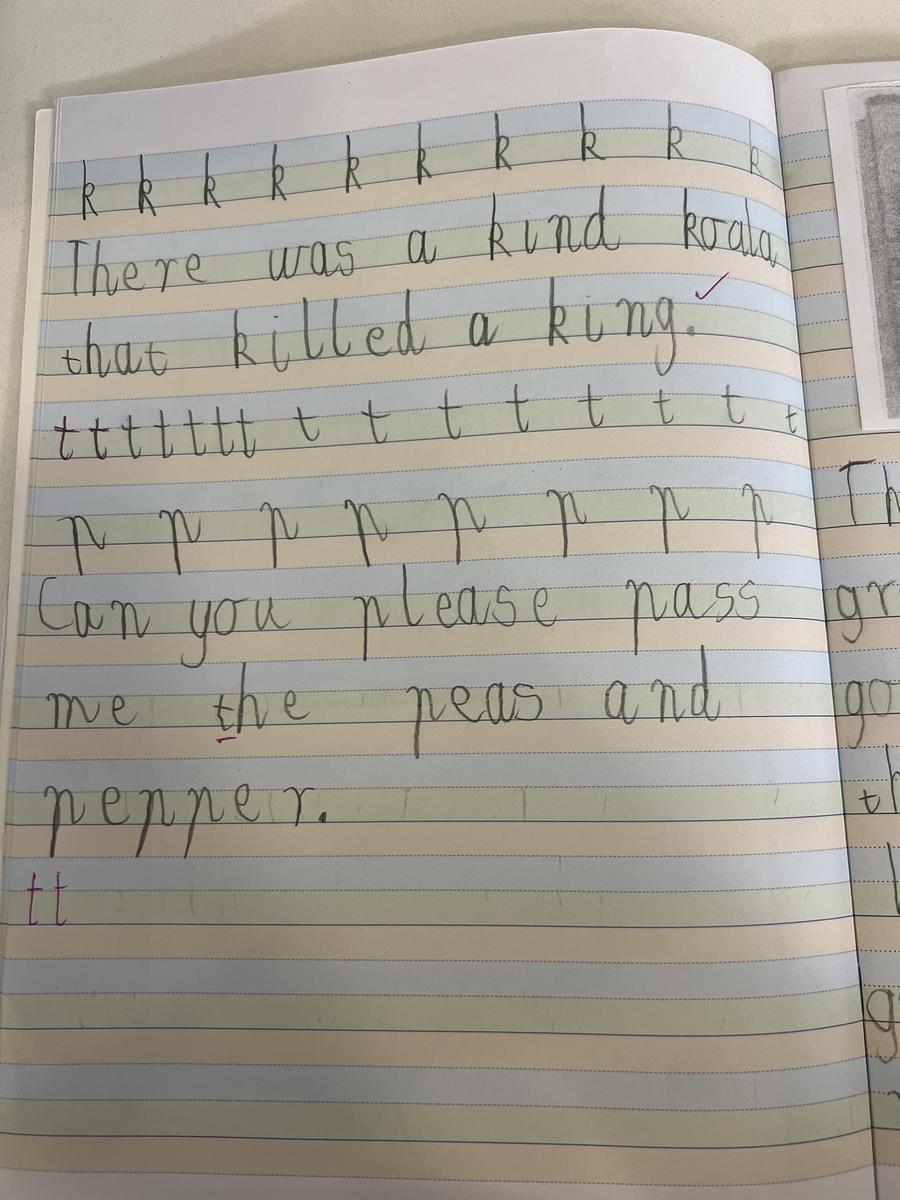 k k k k k k k k k k
There was a kind koala
that killed a king.
t t t t t t t t t t t t t t t
p p p p p p p p
Can you please pass
me the peas and
pepper.
tt
Th
gr
go
th
g